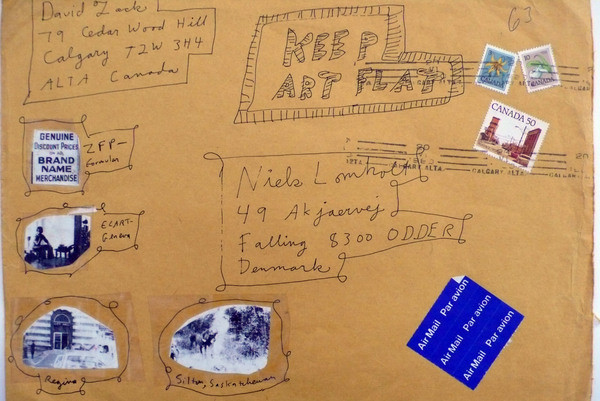 David Zack
79 Cedar Wood Hill
Calgary T2W 3H4
ALTA Canada
KEEP
ART FLAT
63
CANADA
CANADA
CANADA 50
CALGARY ALTA.
GENUINE
DISCOUNT PRICES
BRAND
NAME
MERCHANDISE
ZFP-
Formulas
ECART-
Geneva
Niels Lomholt
49 Akjaervej
Falling 8300 ODDER
Denmark
Regina
Silton, Saskatchewan
Air Mail Par avion
Air Mail Par avion
Air Mail Par avion